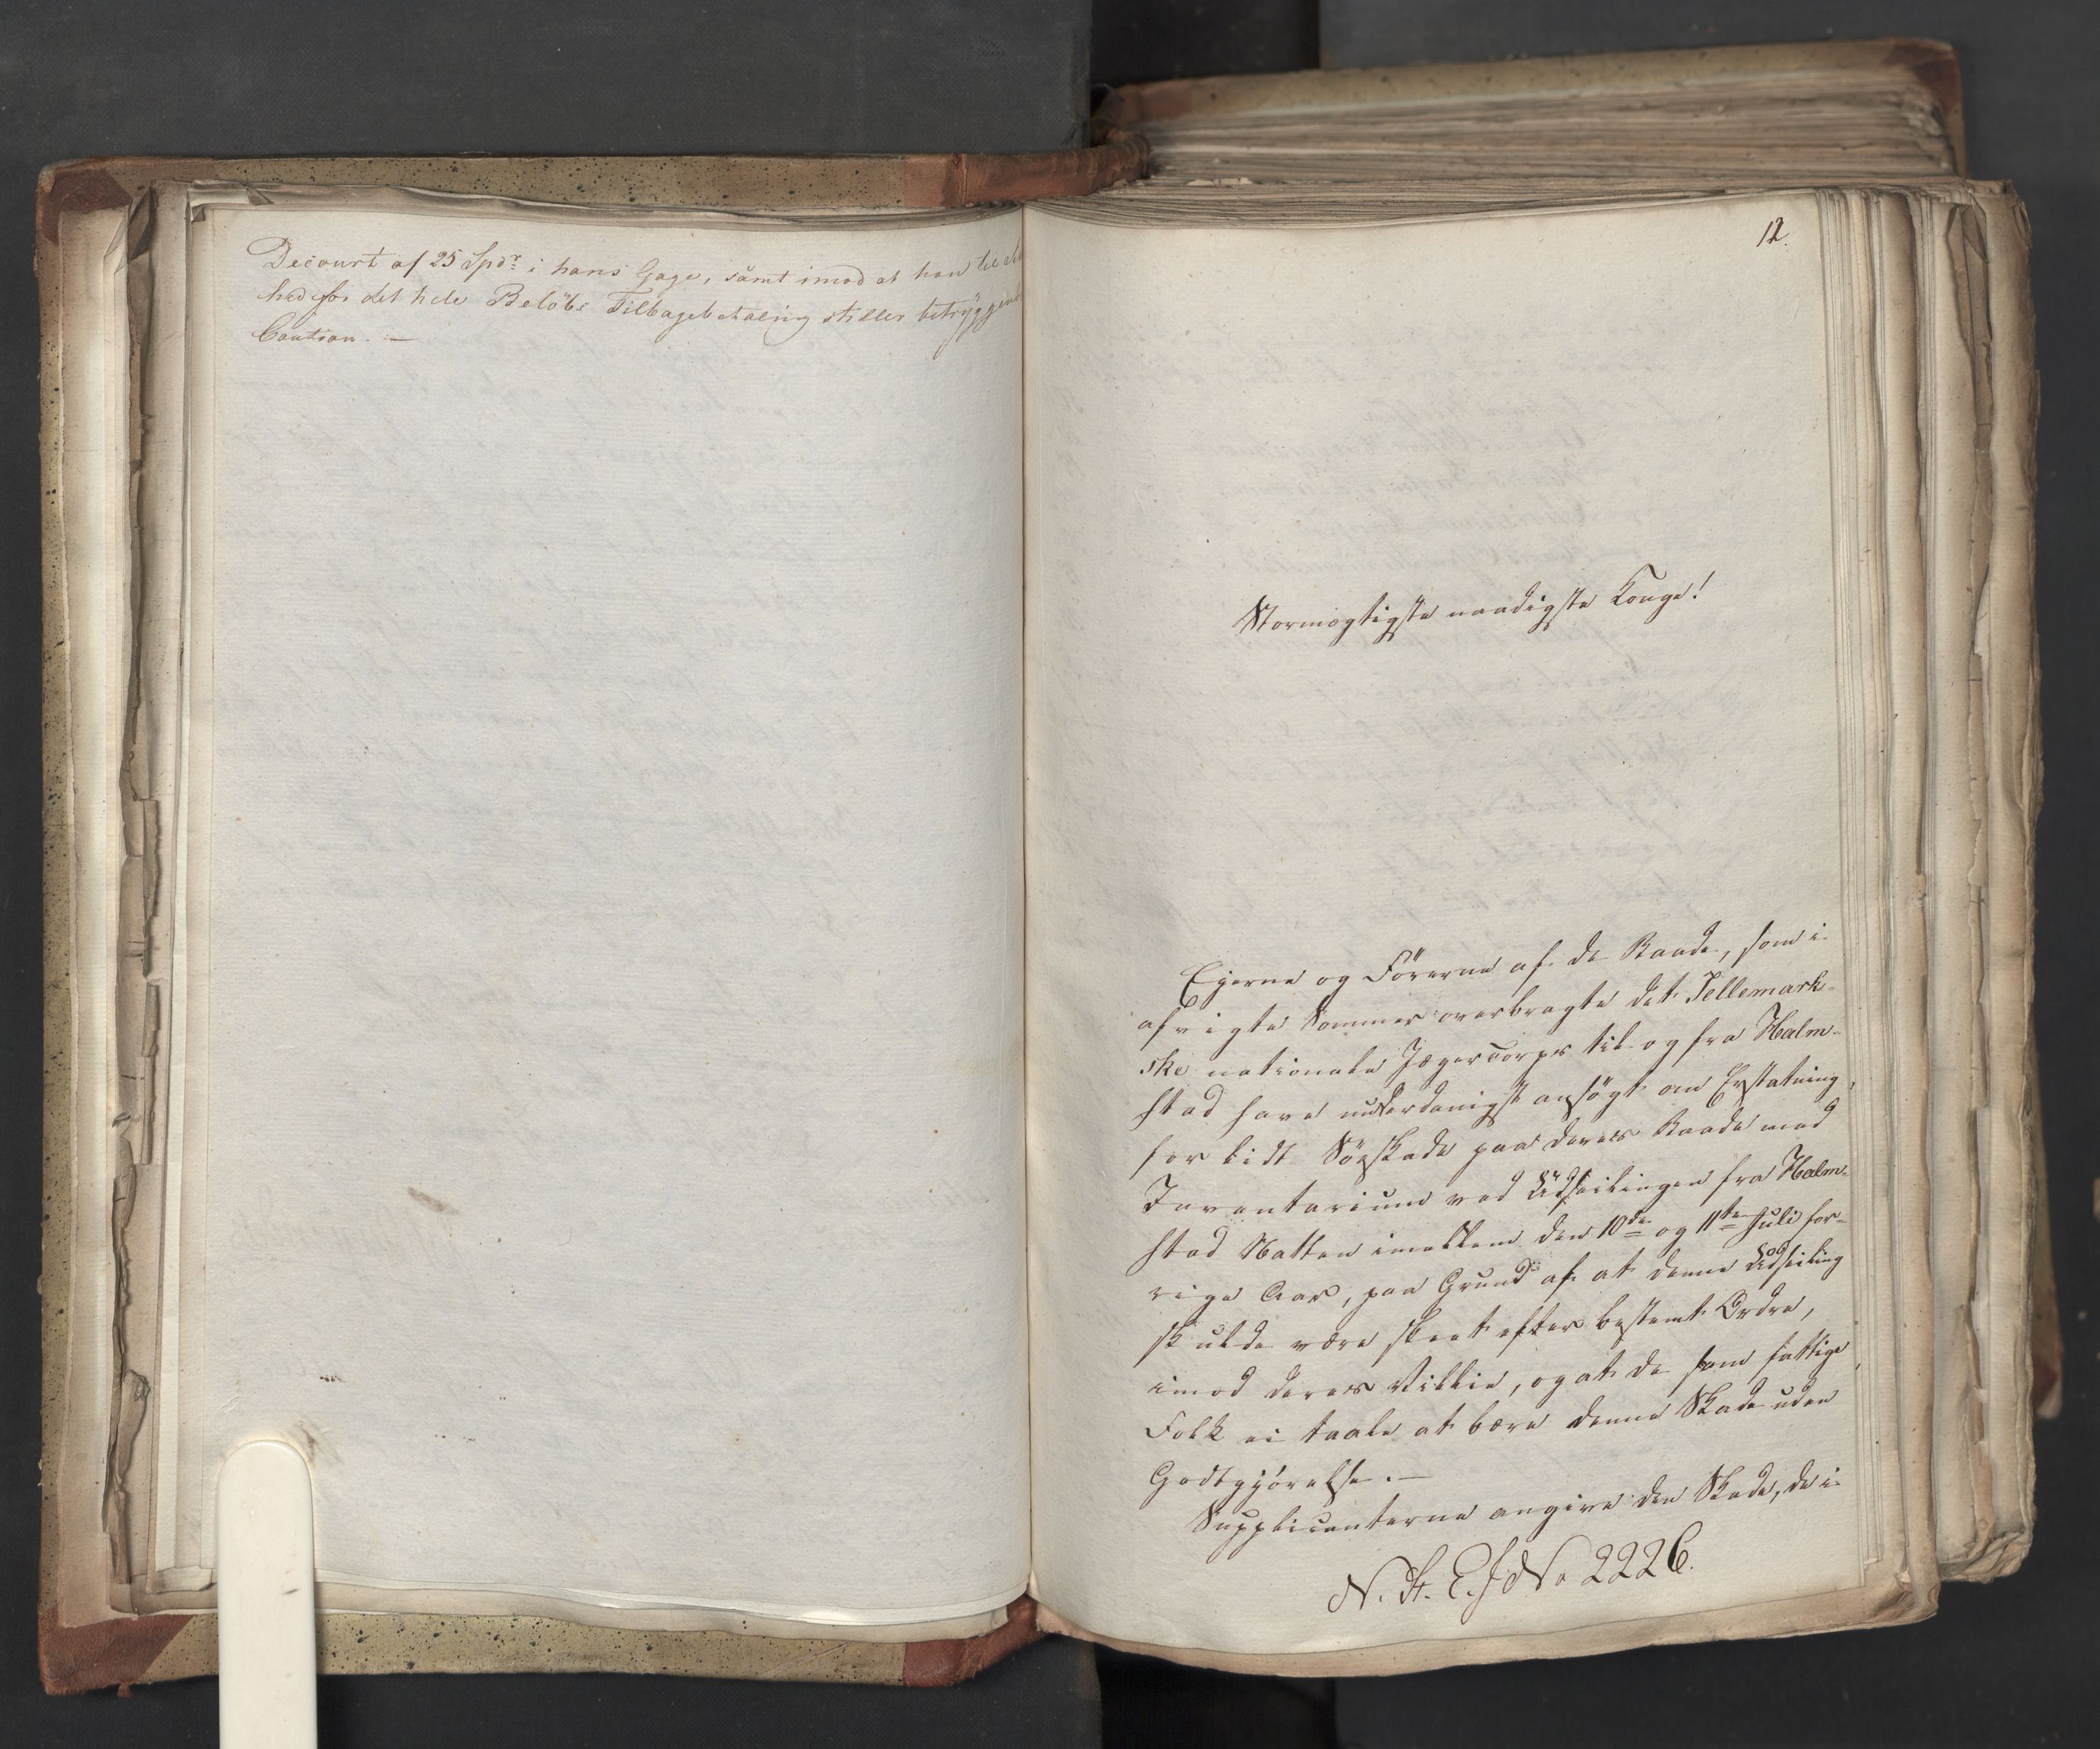 Decourt af 25 Spdr i hans Gage, samt imod at han til
hed for det hele Belöbs Tilbagebetaling stiller betryggende
Caution. —
12.
Stormægtigste naadigste Konge!
Eierne og Förerne af de Baade, som i
afvigte Sommer overbragte det Tellemark-
ske nationale Jægercorps til og fra Halm-
stad have underdanigst ansögt om Erstatning
for lidt Söeskade paa deres Baade med
Inventarium ved Udseilingen fra Halm-
stad Natten imellem den 10de og 11te Juli for-
rige Aar, paa Grund af at denne Udseiling
skulde være skeet efter bestemt Ordre,
imod deres Villie, og at de som fattige
Folk ei taale at bære denne Skade uden
Godtgjörelse. —
Supplicanterne angive den Skade, de i
N. St. E. J No 2226.